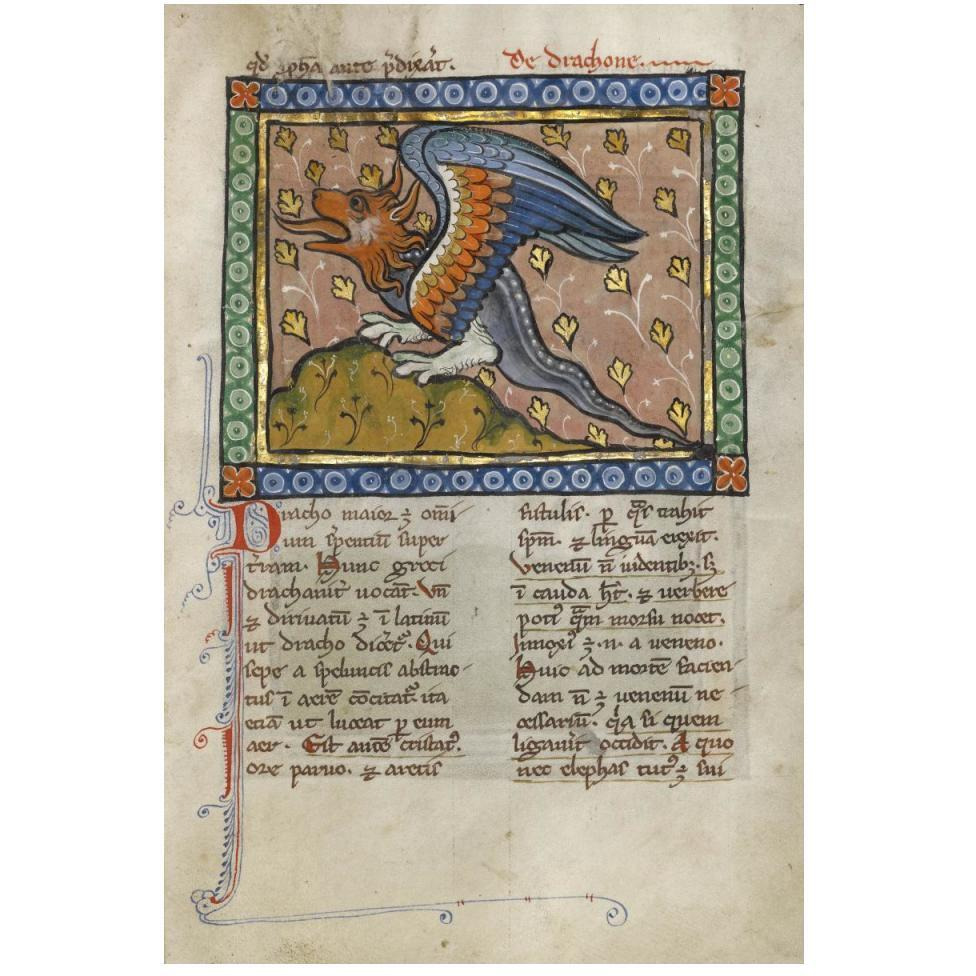 qđ ꝓpha ante p̄dixat̉.
De drachone.
Dracho maior ⁊ omī
um s̉pentiū super
t̉ram. Hunc greci
drachanū uocāt. Vn̄
⁊ dirivatū ⁊ ī latinū
ut dracho dicet̉. Qui
sepe a speluncis abstrac
tus ī aerem cōcitat̉. ita
etiā ut luceat ꝑ eum
aer. Est autē cristatꝰ.
ore paruo. ⁊ artis
fistulis. ꝑ q̄s trahit
spm̄. ⁊ linguā exerit.
Venenū n̄ ī dentibꝫ. sꝫ
ī cauda ht̄. ⁊ verbere
potiꝰ q̄m morsu nocet.
Innoxiꝰ ⁊ .n. a veneno.
Huic ad mortē facien
dam n̄ ⁊ venenū ne
cessariū. q̉a si quem
ligauit̉ occidit. A quo
nec elephas tutꝰ ⁊ sui